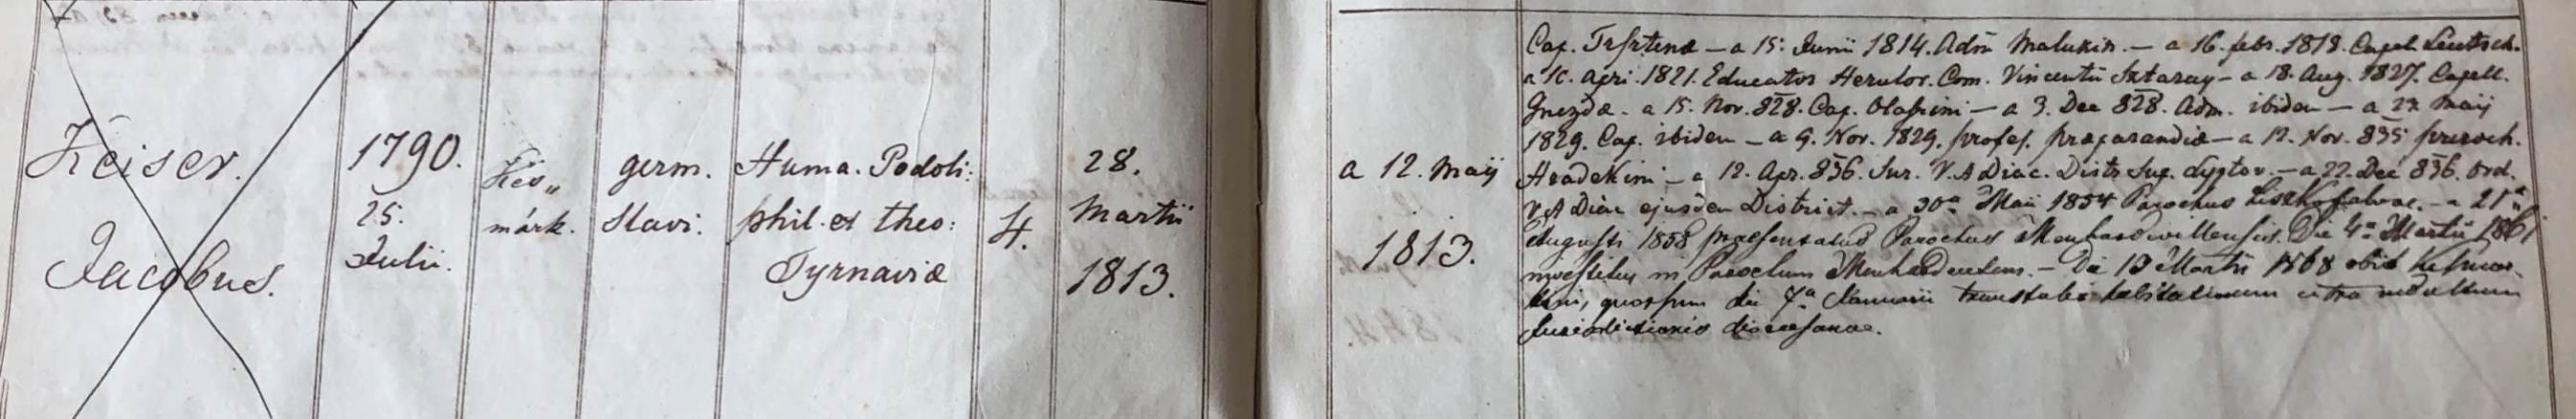 Keiser.
Jacobus.
1790.
25.
Julii.
Kés„
márk.
germ.
Slavi.
Huma. Podoli:
phil. et theo:
Tyrnaviæ
4.
28.
Martii
1813.
a 12. Maij
1813.
Cap. Trsztenæ — a 15. Junii 1814. Adm. — a 16. febr. 1818. Capel. Leutsch.
a 10. Apri. 1821. Educator Com. Vincentii Sztaray — a 18. Aug. 1827. Capell.
Gnezdæ. a 15. Nov. 828. Cap. Olafsini — a 3. Dec 828. Adm. ibidem — a 22 Maij
1829. Cap. ibidem — a 9. Nov. 1829. profes. præparandiæ — a 12. Nov. 835 paroch.
Hradekini — a 12. Apr. 836. Sur. V. A Diac. Distr. Sup. Lyptov. — a 22. Dec 836. Ord.
V. A Diac ejusdem District. — a 30a Maii 1854 Parochus Liszkofalvae. — a 21a
Augusti 1858 praesentatus Parochus Menhardvillensis. Die 4a Martii 1861
investitus in Parochum — Die 13 Martii 1868 obiit
quorsum die 7a Januarii habitationem
Jurisdictionis dioecesanae.